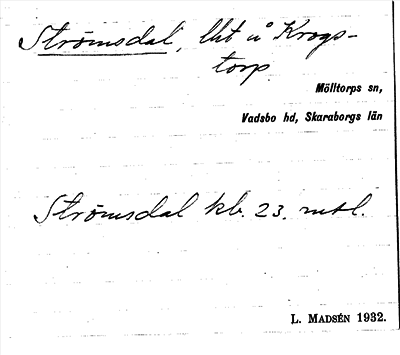 Strömsdal, lht å Krogs-
torp
Mölltorps sn,
Vadsbo hd, Skaraborgs län
Strömsdal kb. 23. mtl.
L. MADSÉN 1932.